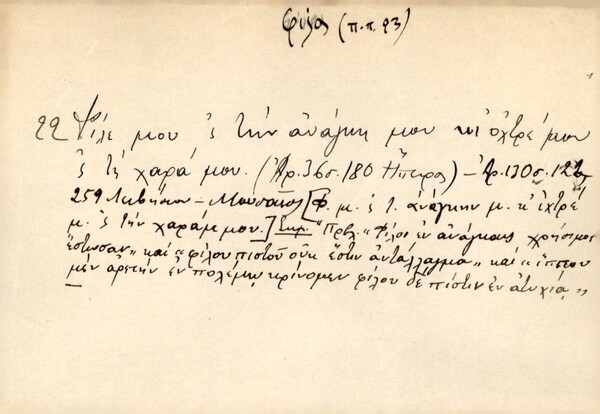 φίλος (π.π. 23)
22 Φίλε μου ς τὴν ἀνάγκη μου κι ὀχτρέ μου
ς τὴ χαρά μου. (Ἀρ. 36 σ. 180 Ἤπειρος) – Ἀρ. 130 σ. 12
259 Λιβήσιον – Μουσαῖος [Φ. μ. ς τ. ἀνάγκην μ. κ' ἐχτρέ
μ. ς τὴν χαράμ μου.] Σημ. "Πρβλ. "Φίλοι ἐν ἀνάγκαις χρήσιμοι
ἔστωσαν" καὶ "φίλου πιστοῦ οὐκ ἔστιν ἀντάλλαγμα" καὶ "ἵππου
μὲν ἀρετὴν ἐν πολέμῳ κρίνομεν φίλου δὲ πίστιν ἐν ἀτυχίᾳ"